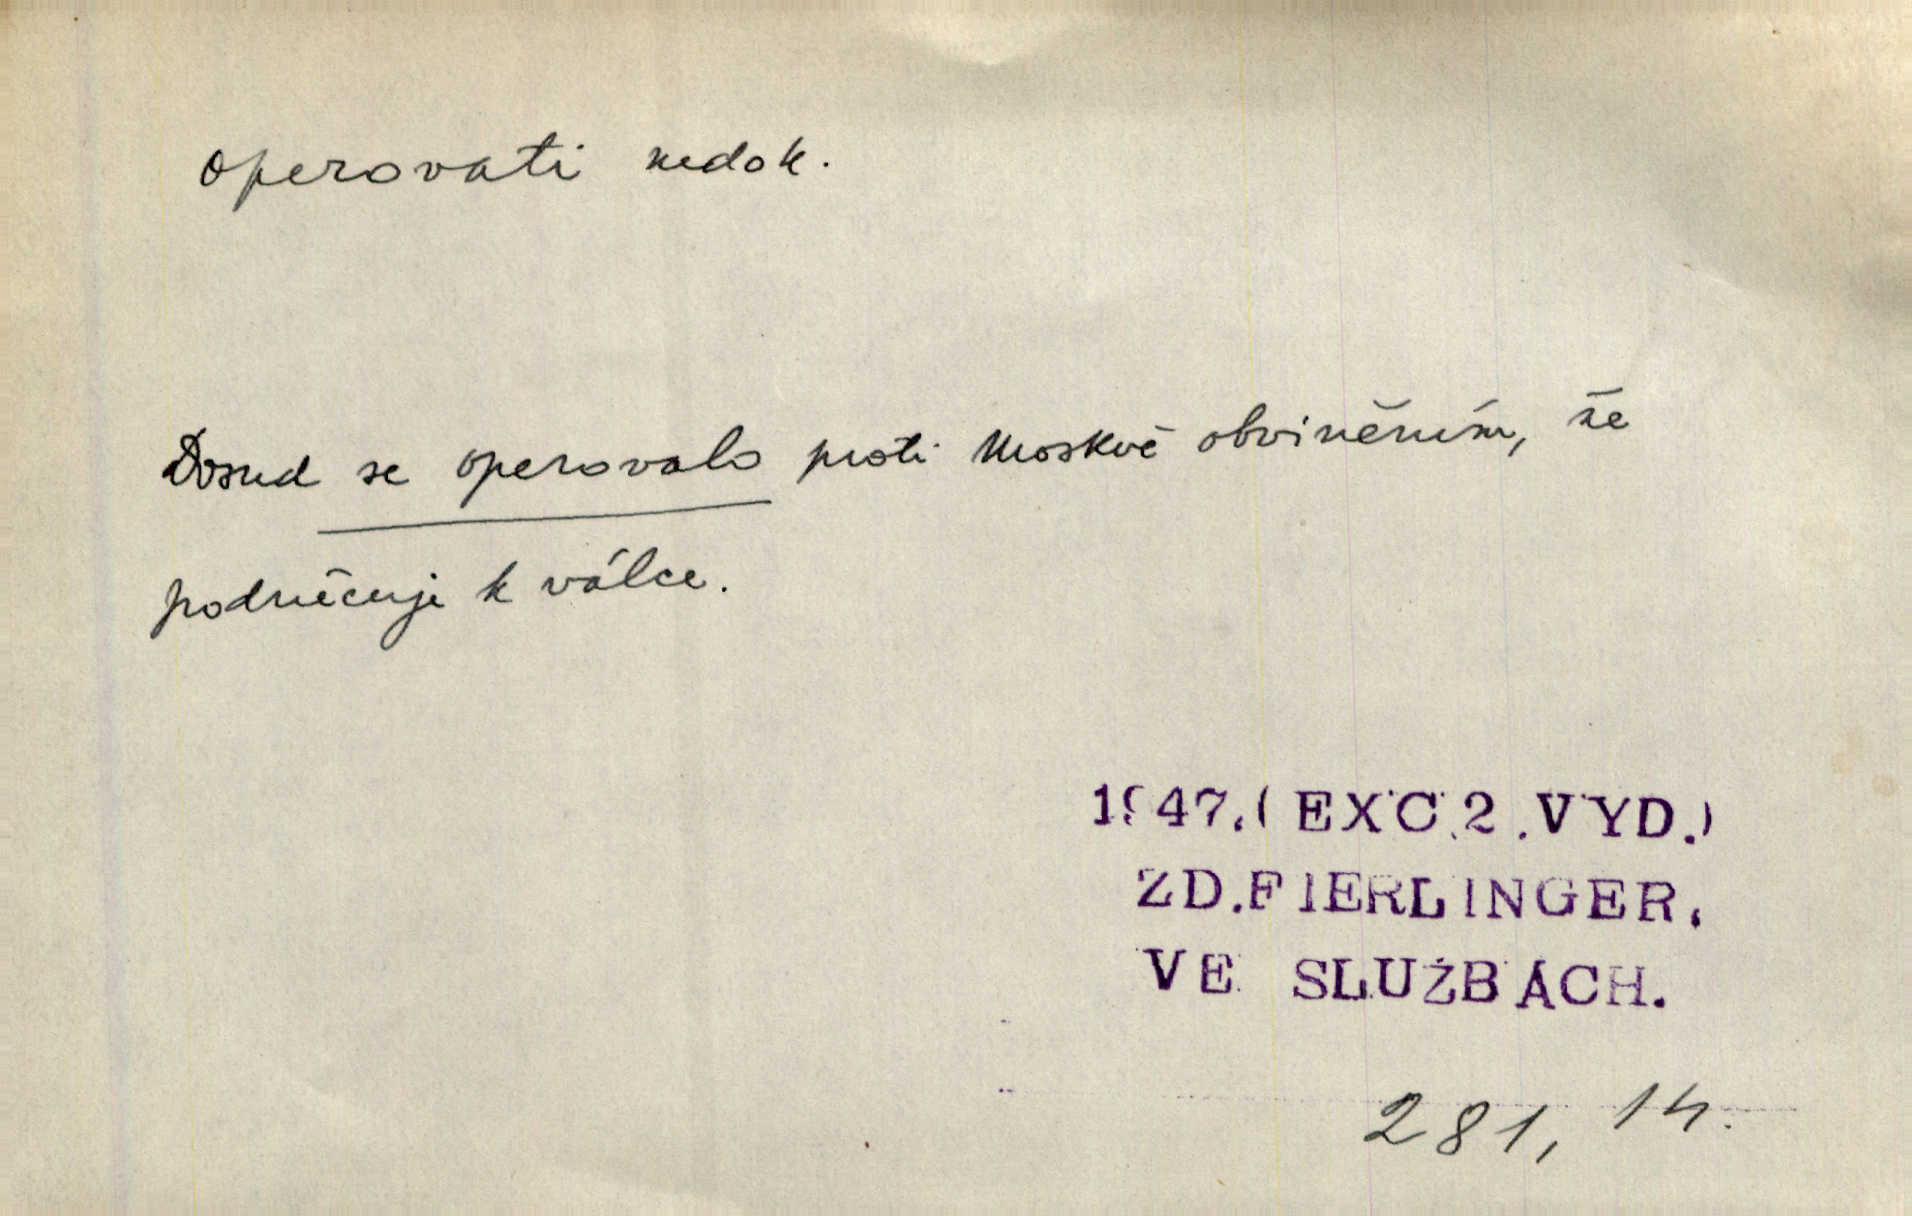 operovati nedok.
Dosud se operovalo proti Moskvě obviněním, že
podněcuje k válce.
1947.(EXC.2.VYD.)
ZD.FIERLINGER.
VE SLUŽBÁCH.
281, 14.